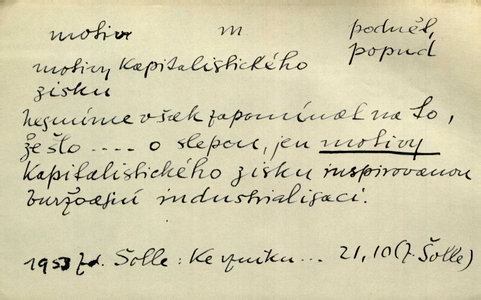 motiv m podnět,
popud
motivy kapitalistického
zisku
Nesmíme však zapomínat na to,
že šlo .... o slepou, jen motivy
kapitalistického zisku inspirovanou
buržoasní industrialisaci.
1953 Zd. Šolle: Ke vzniku... 21, 10 (Z. Šolle)